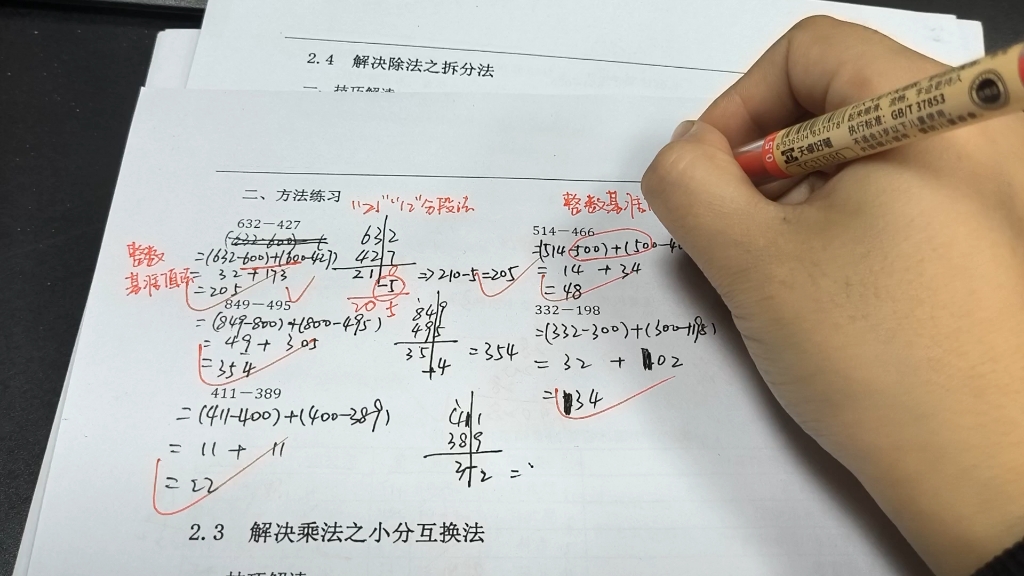 2.4 解决除法之拆分法
一、技巧解读
二、方法练习
"21""12"分段法
整数基准
整数
基准值法
632－427
=(632-600)+(600-427)
= 32 + 173
= 205
632
427
21
-5
205
⇒210-5=205
514－466
=(514-500)+(500-4
= 14 + 34
= 48
849－495
=(849-800)+(800-495)
= 49 + 305
= 354
849
495
35
-4
=354
332－198
=(332-300)+(300-198)
= 32 + 102
= 134
411－389
=(411-400)+(400-389)
= 11 + 11
= 22
411
389
3
-2
=
2.3 解决乘法之小分互换法
技巧解读
0.5
6 936504 837078
执行标准: GB/T 37853
天卓好笔